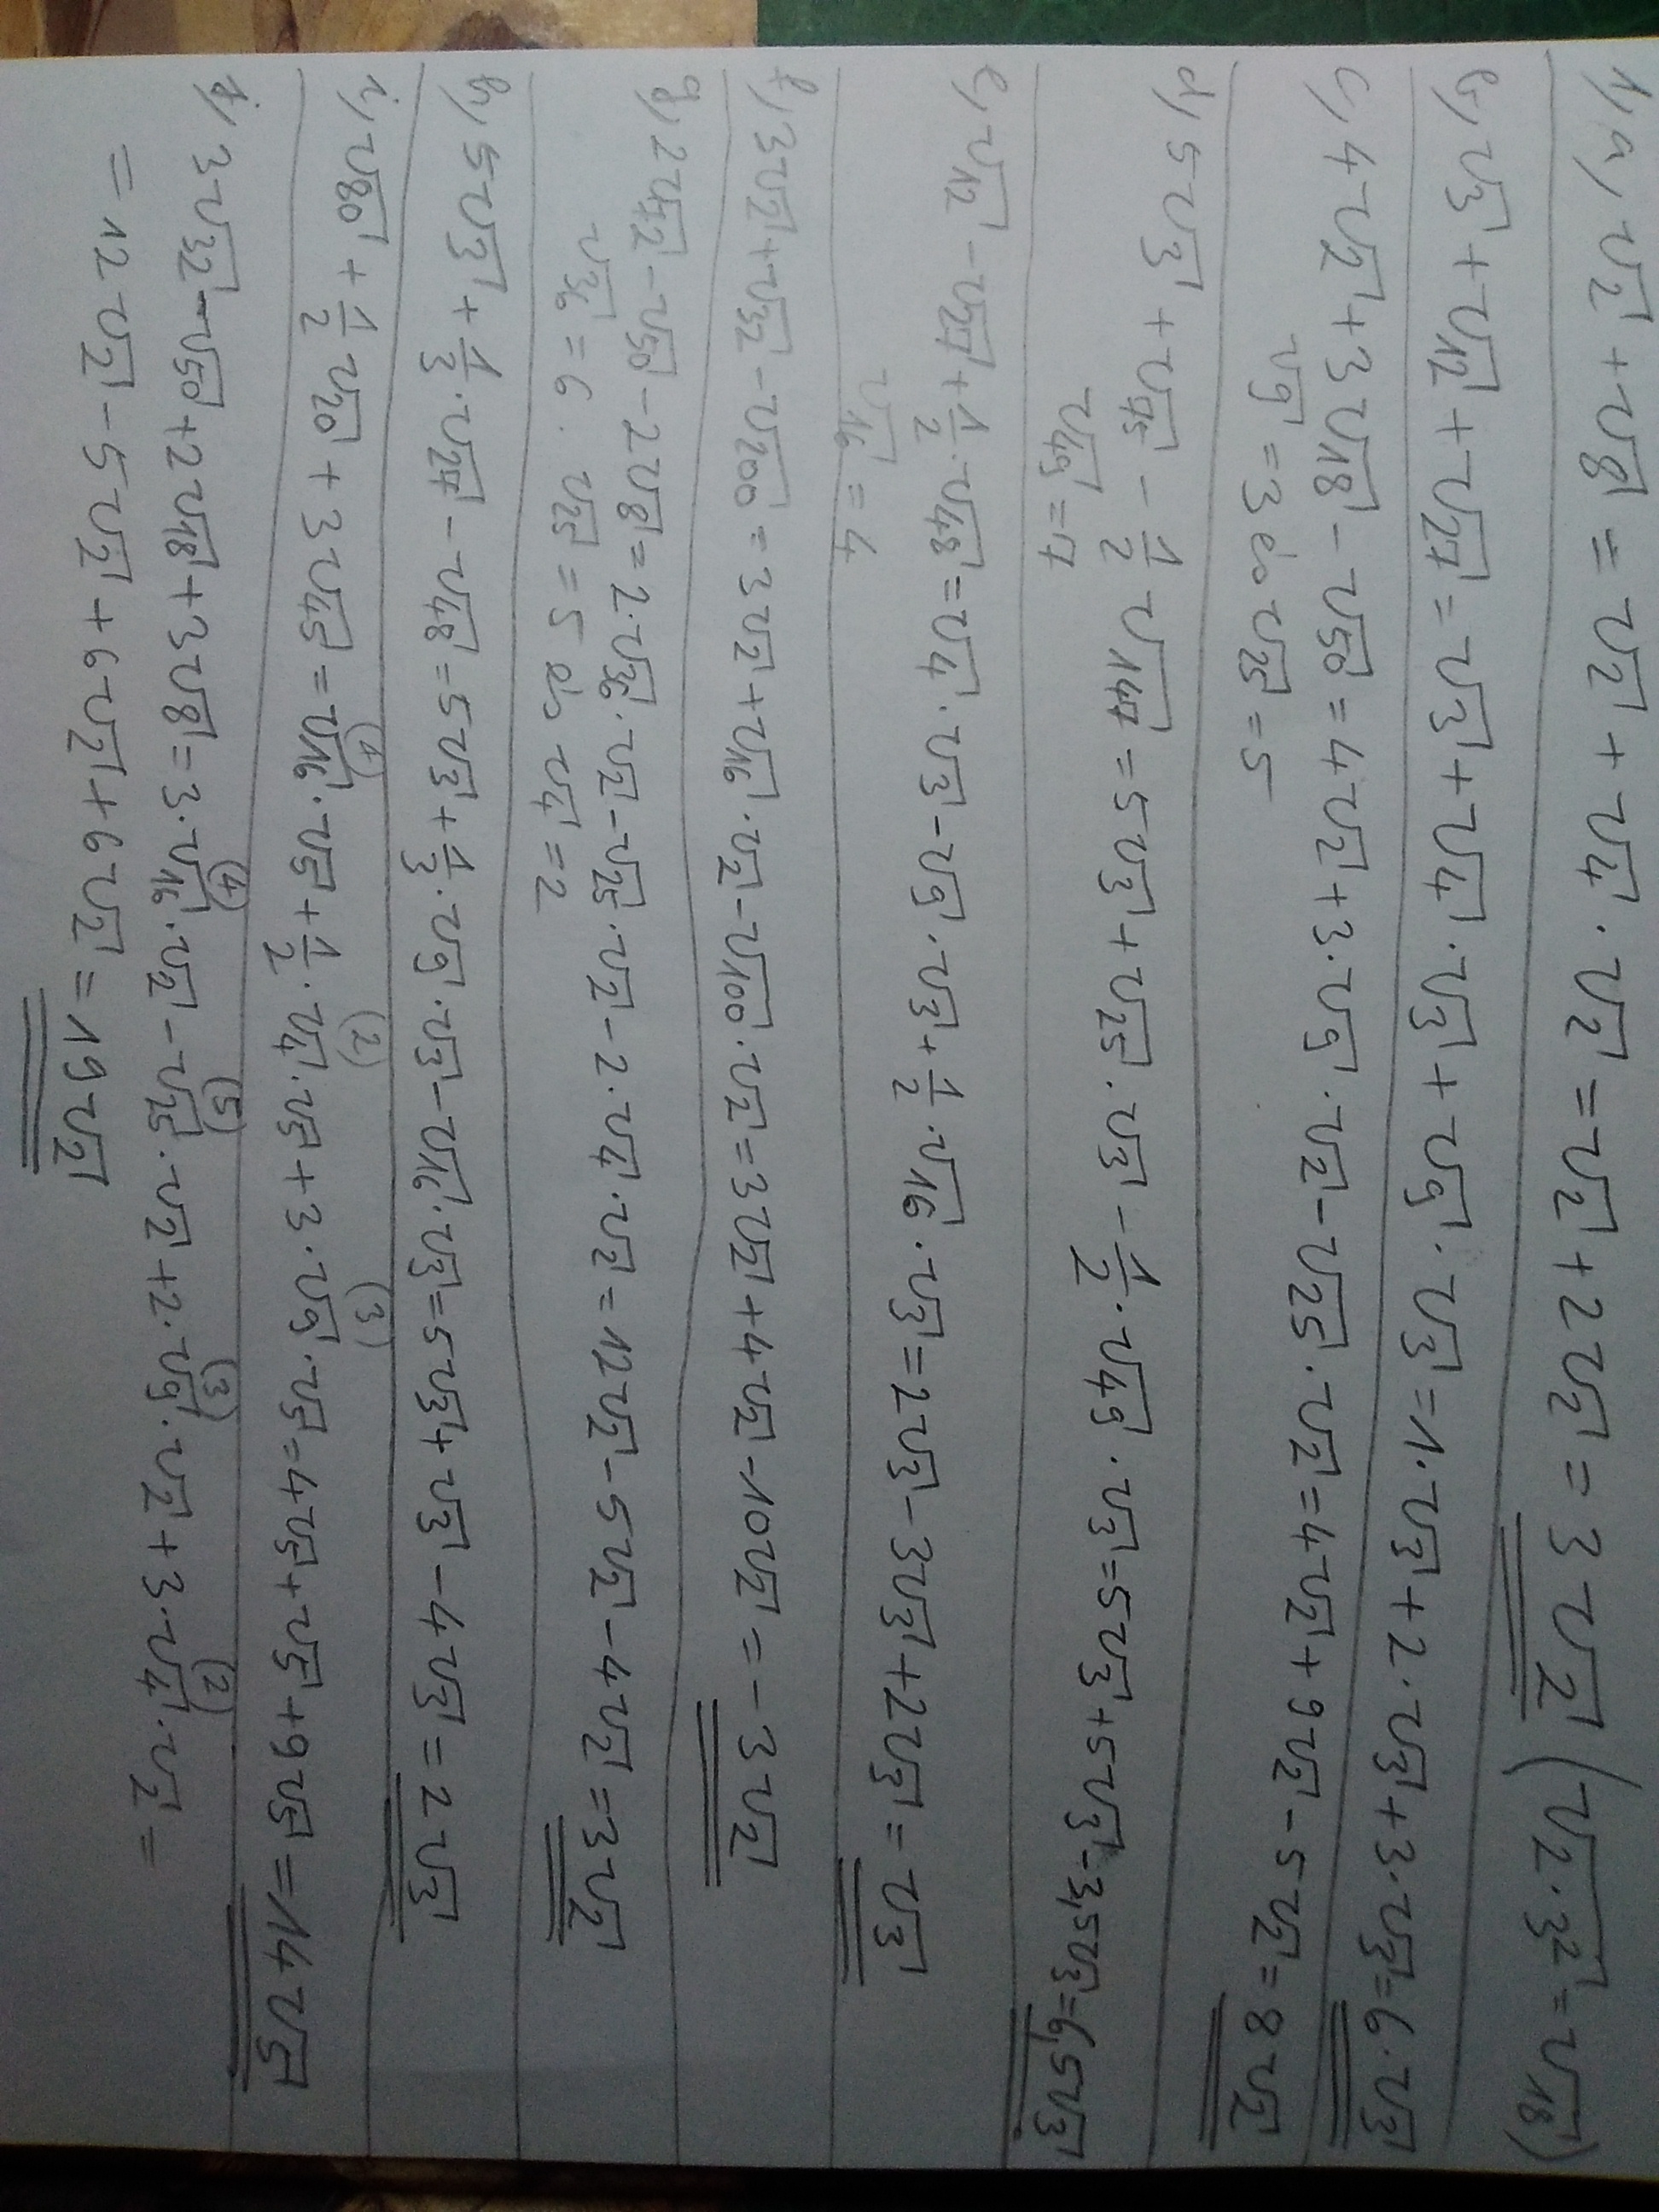 1, a, √2 + √8 = √2 + √4 · √2 = √2 + 2√2 = 3√2 (√2·3² = √18)
b, √3 + √12 + √27 = √3 + √4 · √3 + √9 · √3 = 1·√3 + 2·√3 + 3·√3 = 6·√3
c, 4√2 + 3√18 - √50 = 4√2 + 3·√9·√2 - √25·√2 = 4√2 + 9√2 - 5√2 = 8√2
√9 = 3 és √25 = 5
d, 5√3 + √75 - 1/2 √147 = 5√3 + √25·√3 - 1/2·√49·√3 = 5√3 + 5√3 - 3,5√3 = 6,5√3
√49 = 7
e, √12 - √27 + 1/2·√48 = √4·√3 - √9·√3 + 1/2·√16·√3 = 2√3 - 3√3 + 2√3 = √3
√16 = 4
f, 3√2 + √32 - √200 = 3√2 + √16·√2 - √100·√2 = 3√2 + 4√2 - 10√2 = -3√2
g, 2√72 - √50 - 2√8 = 2·√36·√2 - √25·√2 - 2·√4·√2 = 12√2 - 5√2 - 4√2 = 3√2
√36 = 6. √25 = 5 és √4 = 2
h, 5√3 + 1/3·√27 - √48 = 5√3 + 1/3·√9·√3 - √16·√3 = 5√3 + √3 - 4√3 = 2√3
(4) (2) (3)
i, √80 + 1/2 √20 + 3√45 = √16·√5 + 1/2·√4·√5 + 3·√9·√5 = 4√5 + √5 + 9√5 = 14√5
(4) (5) (3) (2)
j, 3√32 - √50 + 2√18 + 3√8 = 3·√16·√2 - √25·√2 + 2·√9·√2 + 3·√4·√2 =
= 12√2 - 5√2 + 6√2 + 6√2 = 19√2